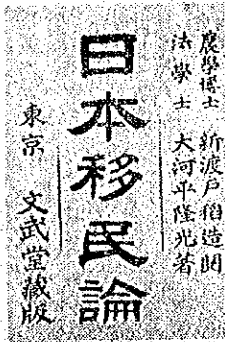 農學博士 新渡戸稻造閲
法學士 大河平隆光著
日本移民論
東京 文武堂藏版